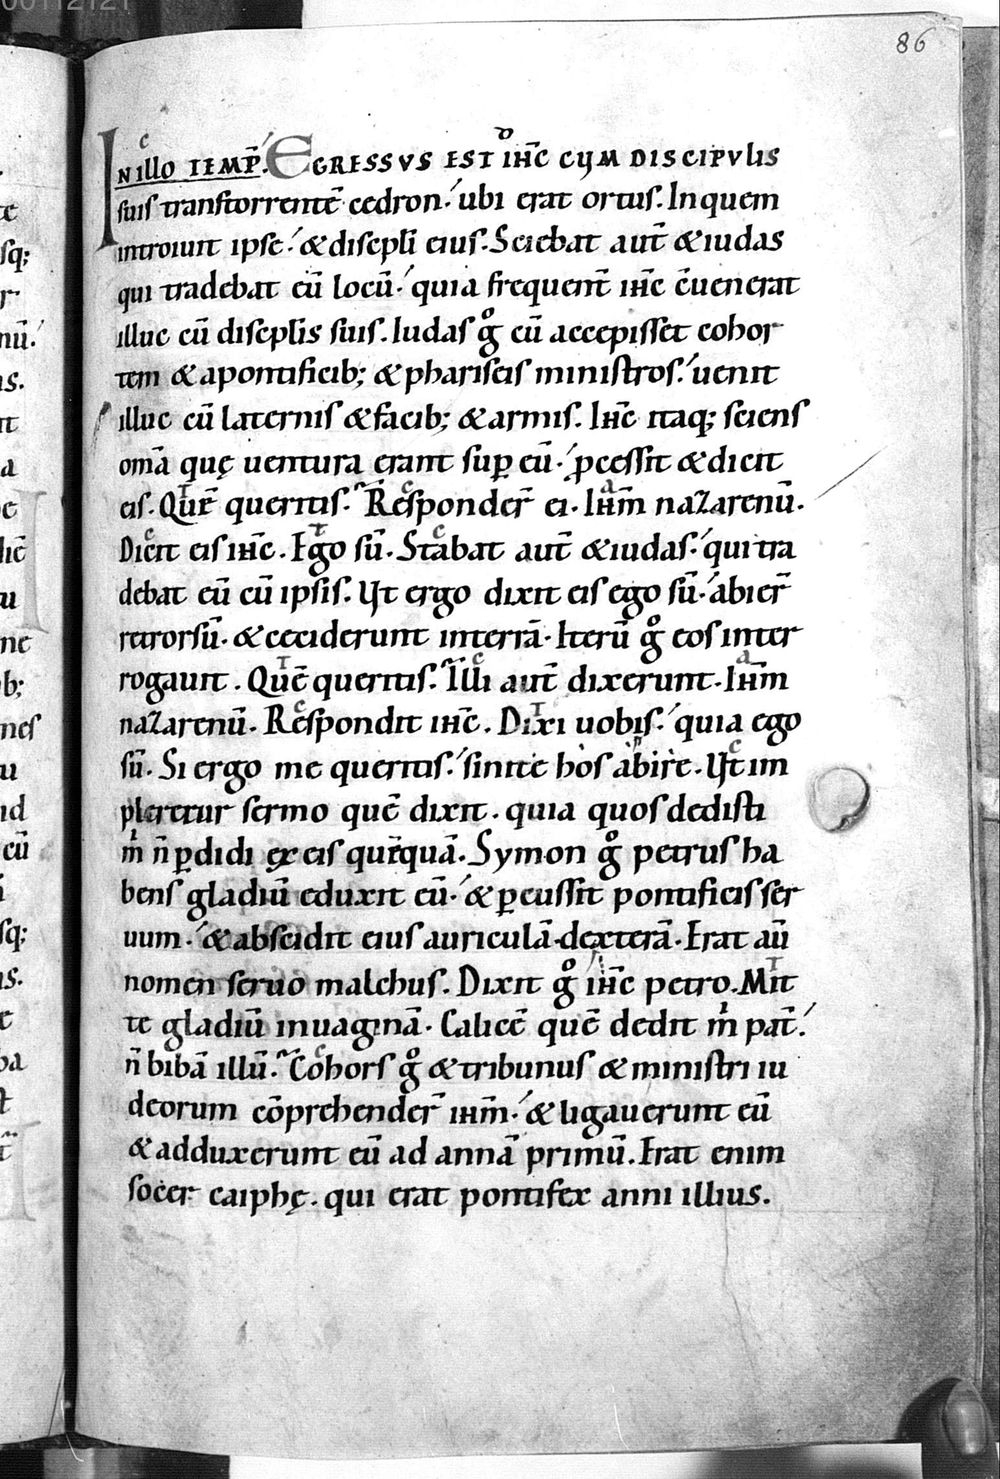 86
IN illo TEMP̄. EGRESSVS EST IHC̄ CVM DISCIPVLIS
suis trans torrentē cedron. ubi erat ortus. In quem
introiuit ipse. & discpli eius. Sciebat aut̄ & iudas
qui tradebat eū locū. quia frequent̄ ihc̄ c̄uenerat
illuc cū discplis suis. Iudas g̊ cū accepisset cohor
tem & a pontificib; & phariseis ministros. uenit
illuc cū laternis & facib; & armis. Ihc̄ itaq; sciens
om̄a quę uentura erant sup̱ eū. ꝓcessit & dicit
eis. Quē queritis. Responder̄ ei. Ihm̄ nazarenū.
Dicit eis ihc̄. Ego sū. Stabat aut̄ & iudas. qui tra
debat eū cū ipsis. Ut ergo dixit eis ego sū. abier̄
retrorsū. & ceciderunt in terrā. Iterū g̊ eos inter
rogauit. Quē queritis. Illi aut̄ dixerunt. Ihm̄
nazarenū. Respondit ihc̄. Dixi uobis. quia ego
sū. Si ergo me queritis. sinite hos abire. Ut im
pleretur sermo quē dixit. quia quos dedisti
m̍ n̄ ꝑdidi ex eis quēquā. Symon g̊ petrus ha
bens gladiū eduxit eū. & ꝑcussit pontificis ser
uum. & abscidit eius auriculā dexterā. Erat aū
nomen seruo malchus. Dixit g̊ ihc̄ petro. Mit
te gladiū in uaginā. Calicē quē dedit m̍ pat̄.
n̄ bibā illū. Cohors g̊ & tribunus & ministri iu
deorum cōprehender̄ ihm̄. & ligauerunt eū
& adduxerunt eū ad annā primū. Erat enim
socer caiphę. qui erat pontifex anni illius.